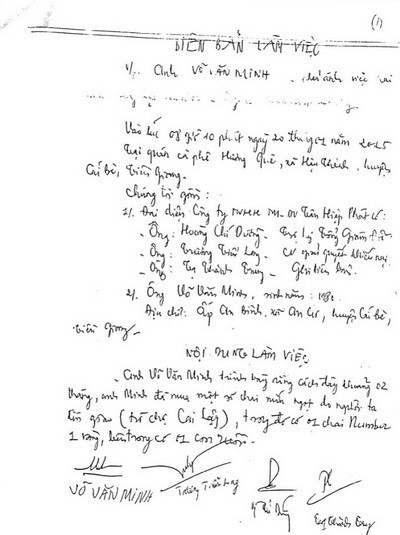 (1)
BIÊN BẢN LÀM VIỆC
V/v Anh VÕ VĂN MINH
Vào lúc 08 giờ 10 phút ngày 20 tháng 01 năm 2015
Tại quán cà phê Hương Quê, xã Hậu Thành, huyện
Cái Bè, Tiền Giang.
Chúng tôi gồm:
1/. Đại diện Công ty TNHH TM-DV Tân Hiệp Phát có:
- Ông: Hoàng Chí Dũng - Trợ lý Tổng Giám Đốc
- Ông: Trương Tiểu Long - CV giải quyết khiếu nại
- Ông: Tạ Thành Trung - Ghi biên bản.
2/. Ông Võ Văn Minh, sinh năm: 1980
Địa chỉ: Ấp An Bình, xã An Cư, huyện Cái Bè,
Tiền Giang.
NỘI DUNG LÀM VIỆC
Anh Võ Văn Minh trình bày rằng cách đây khoảng 02
tháng, anh Minh đã mua một số chai nước ngọt do người ta
lên giao (từ chợ Cai Lậy), trong đó có 01 chai Number
1 vàng, bên trong có 01 con ruồi.
VÕ VĂN MINH Trương Tiểu Long